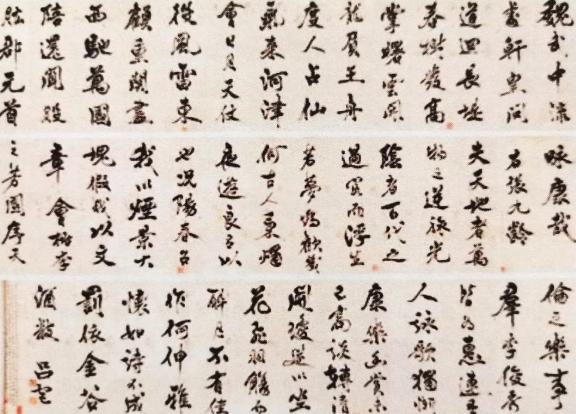 魏武中流
處軒皇問
道回長堤
春樹發高
掌曙雲開
龍負王舟
度人占仙
氣來河津
會日月天仗
役風雷東
顧重關盡
西馳萬國
陪還聞股
肱郡元首
詠康哉
右張九齡
夫天地者萬
物之逆旅光
陰者百代之
過客而浮生
若夢為歡幾
何古人秉燭
夜遊良有以
也況陽春召
我以煙景大
塊假我以文
章會桃李
之芳園序天
倫之樂事
羣季俊秀
皆為惠連吾
人詠歌獨慚
康樂幽賞未
已高談轉清
開瓊筵以坐
花飛羽觴而
醉月不有佳
作何伸雅
懷如詩不成
罰依金谷
酒數 呂